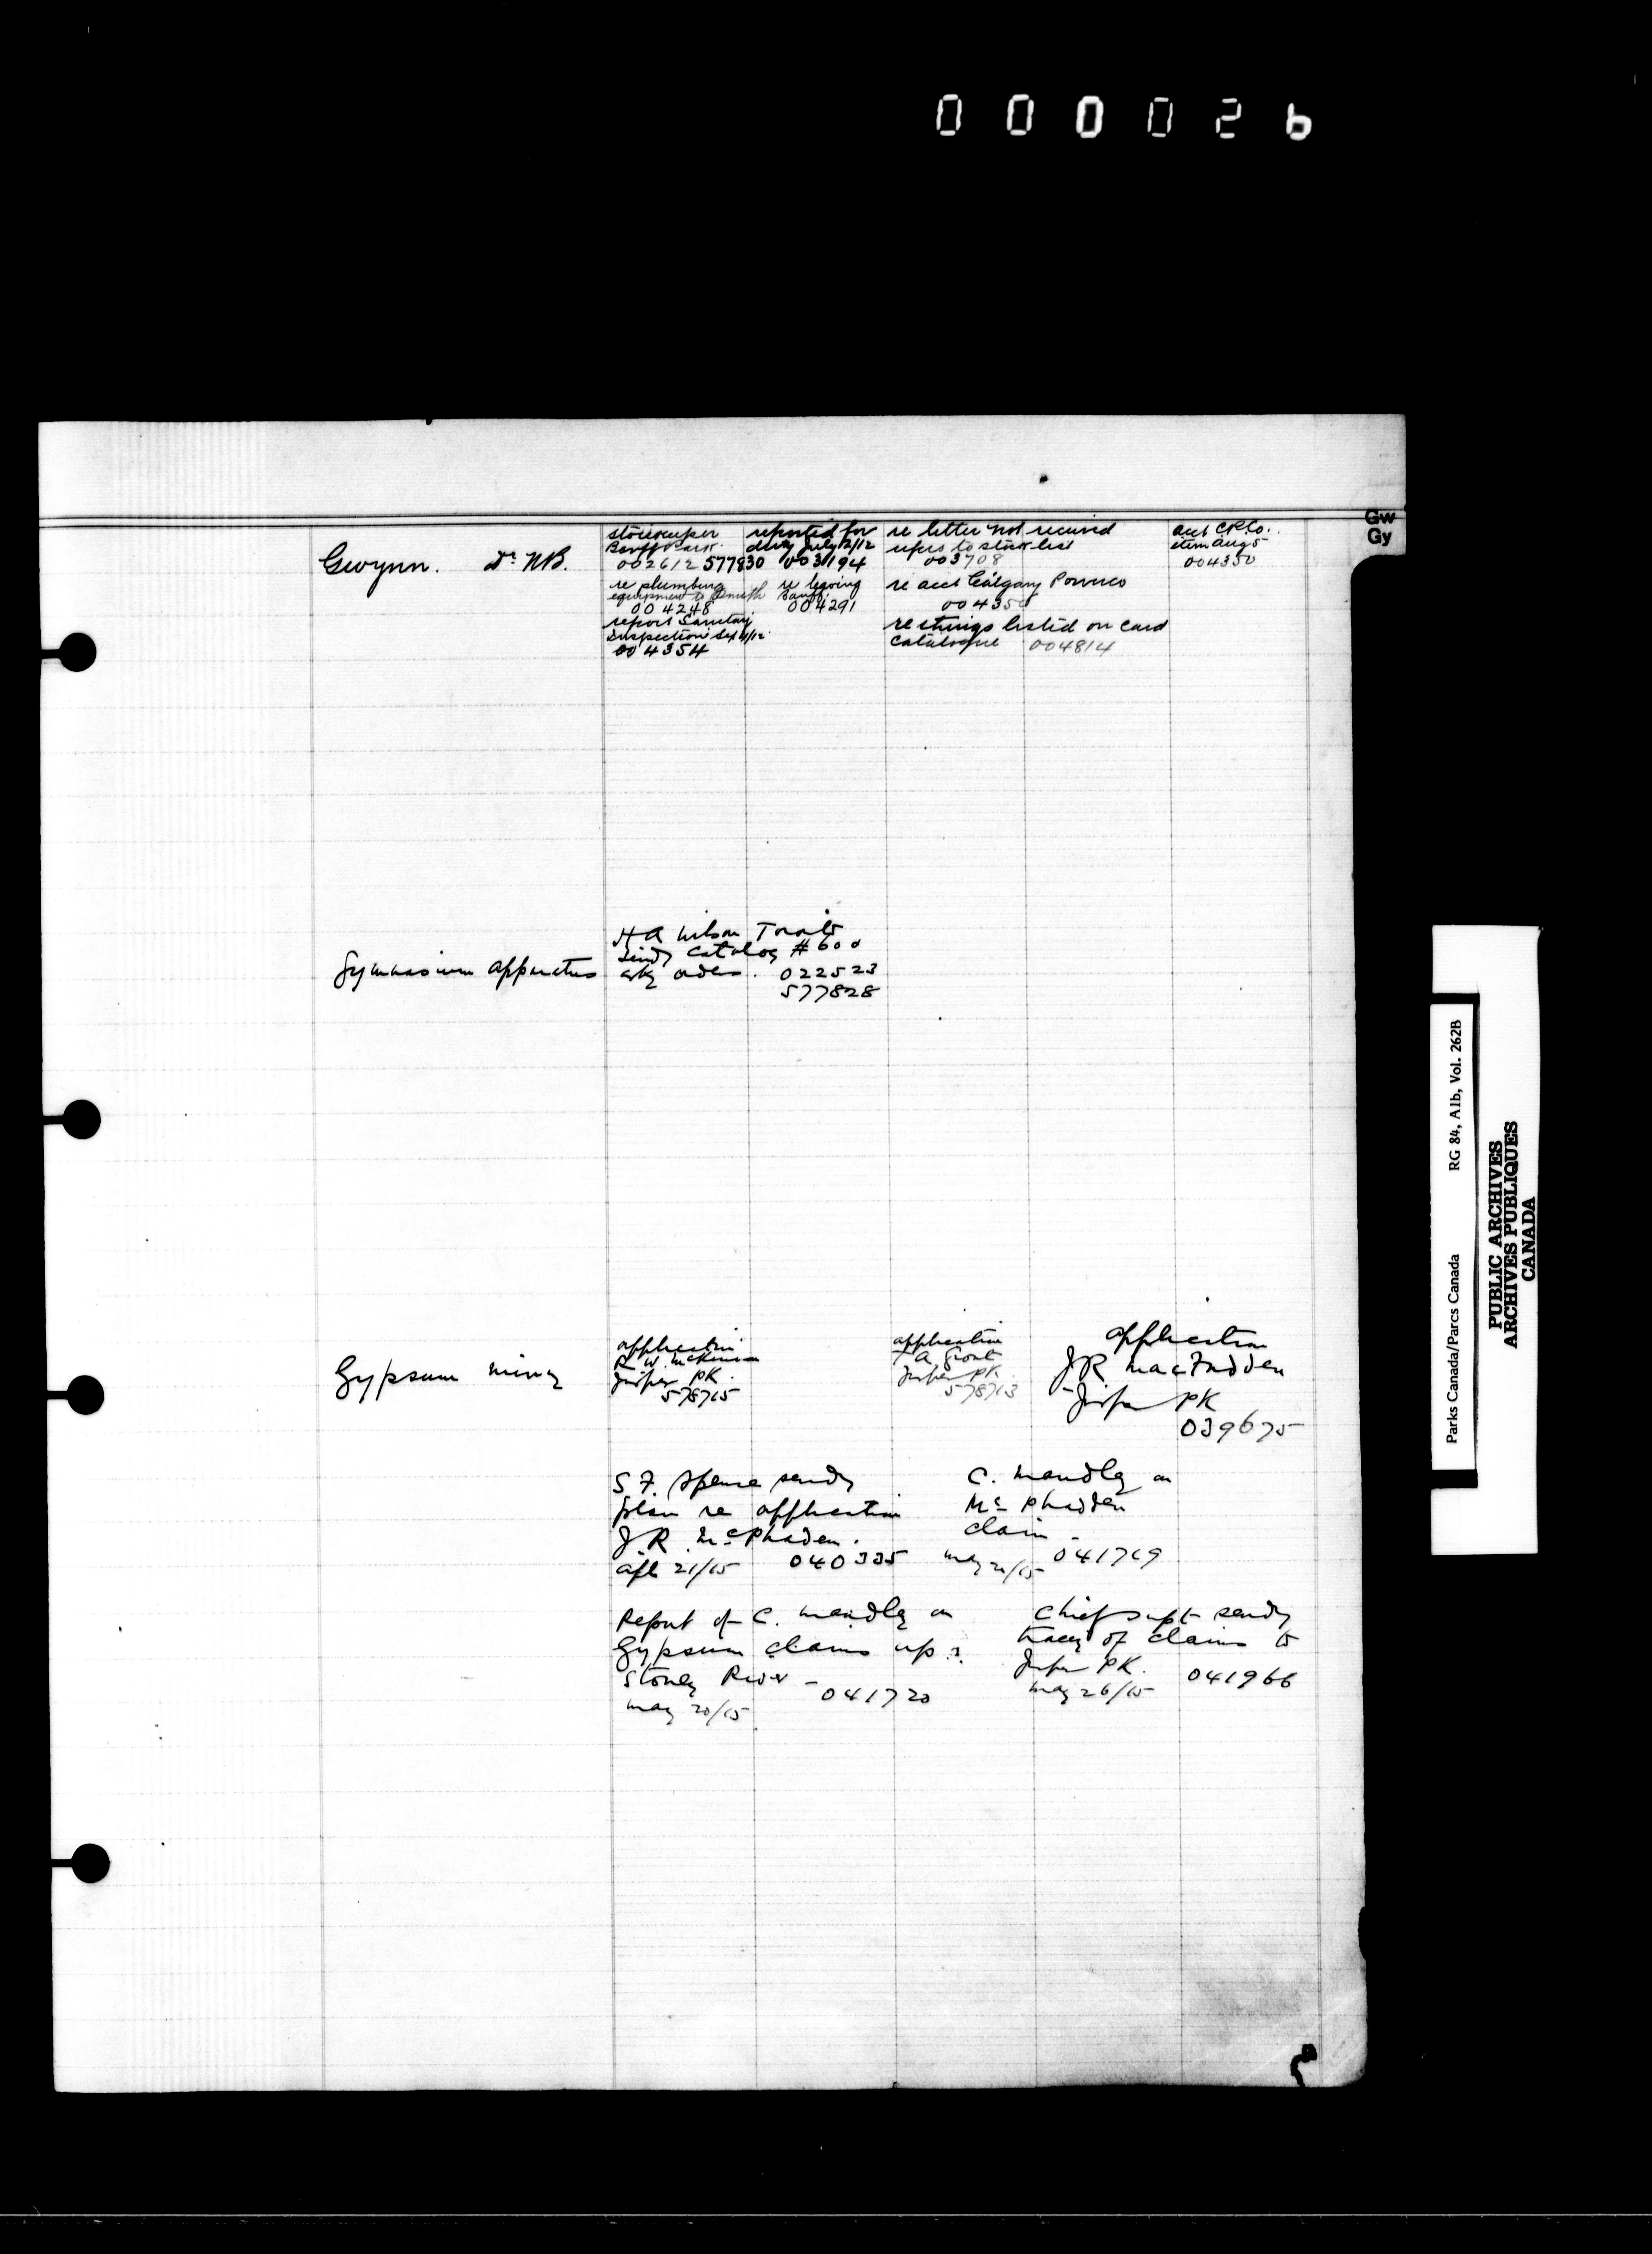 000026
Gw
Gy
Gwynn. Dr NB.
storekeeper
Banff Park.
002612 577830
reported for
duty July 12/12
003194
re letter not received
refers to stock list
003708
acct CPRCo.
item Aug 5
004350
re plumbing
equipment to
004248
re leaving
Banff.
004291
re acct Calgary Power Co
00435
report Sanitary
Inspection
004354
re things listed on card
catalogue 004814
Gymnasium apparatus
H A Wilson Toronto
sends catalog #600
asks orders. 022523
577828
Gypsum mining
application
R. W. McKinnon
Jasper PK.
578715
application
A Grant
Jasper PK.
578713
application
J R MacFadden
Jasper PK
039675
S F. Spense sends
plan re application
J. R. McPhaden.
apl 21/15 040335
C. Mendly on
Mc Phadden
claim -
May 21/15 041719
Report of C. Mendly on
Gypsum claims up
Stoney River -
May 20/15 041720
Chief Supt sends
tracing of claims to
Jasper PK.
May 26/15 041966
Parks Canada/Parcs Canada RG 84, A1b, Vol. 262B
PUBLIC ARCHIVES
ARCHIVES PUBLIQUES
CANADA